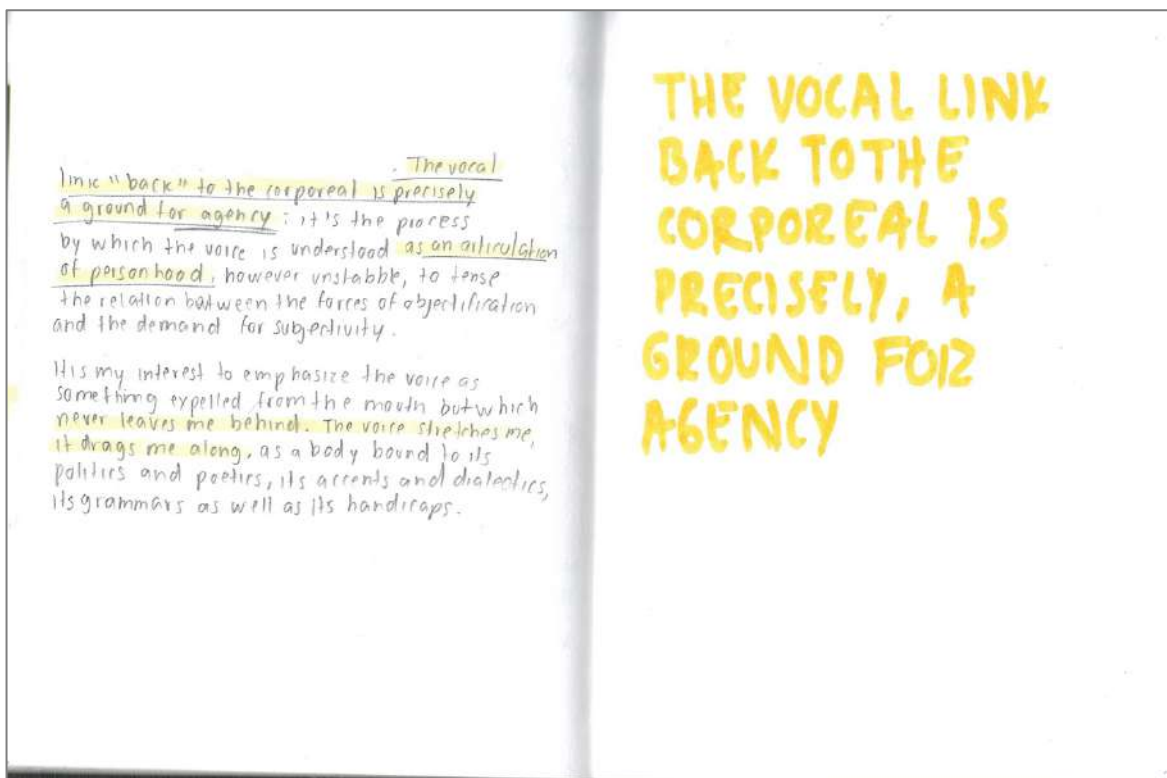 . The vocal
link "back" to the corporeal is precisely
a ground for agency : it's the process
by which the voice is understood as an articulation
of personhood, however unstabble, to tense
the relation between the forces of objectification
and the demand for subjectivity.
It is my interest to emphasize the voice as
something expelled from the mouth but which
never leaves me behind. The voice stretches me,
it drags me along, as a body bound to its
politics and poetics, its accents and dialectics,
its grammars as well as its handicaps.
THE VOCAL LINK
BACK TO THE
CORPOREAL IS
PRECISELY, A
GROUND FOR
AGENCY